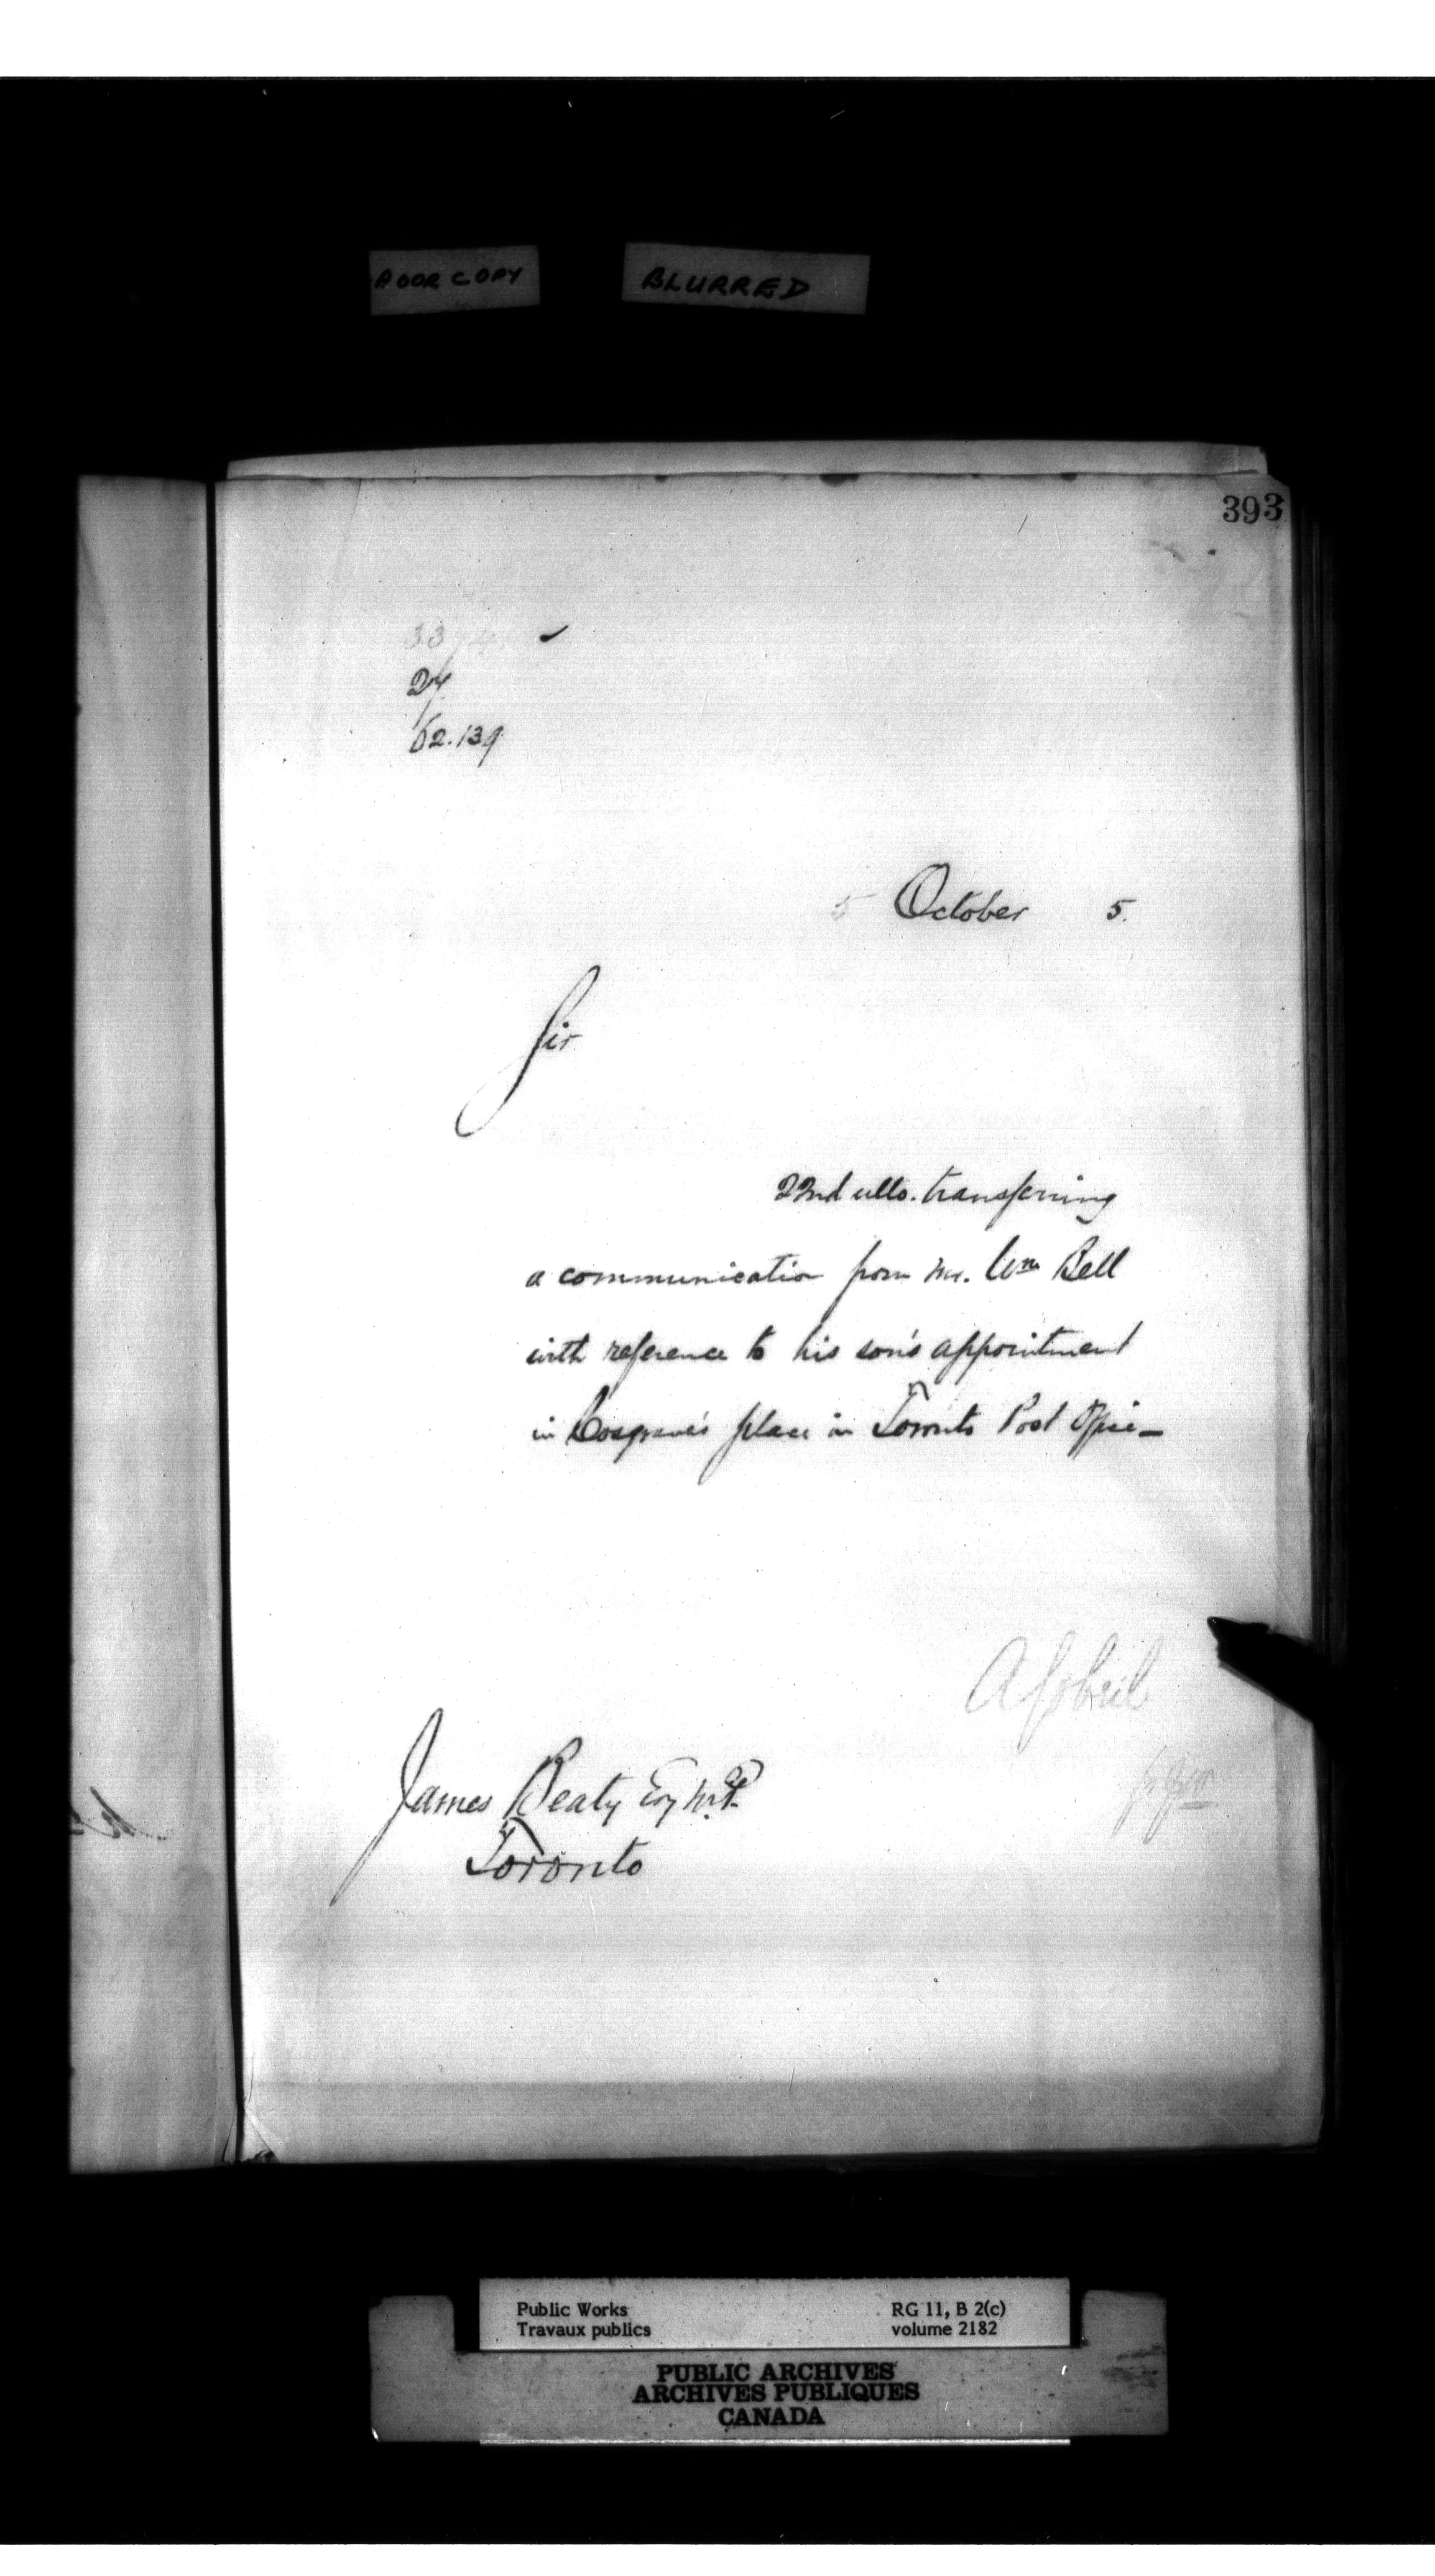 POOR COPY BLURRED
393
33
27
62.139
5 October 5.
Sir
22nd ulto. transferring
a communication from Mr. Wm Bell
with reference to his son's appointment
in Cosgrave's place in Toronto Post Office_
A Gobeil
James Beaty Esq M.P.
Toronto
Public Works RG 11, B 2(c)
Travaux publics volume 2182
PUBLIC ARCHIVES
ARCHIVES PUBLIQUES
CANADA